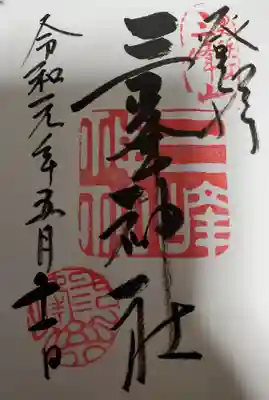 登拝
三峯神社
令和元年五月十一日